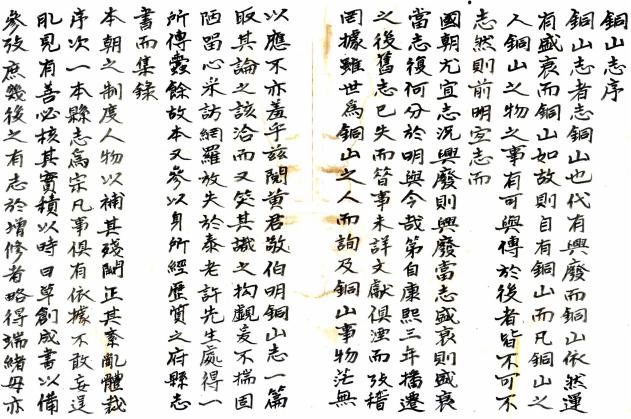 銅山志序
銅山志者志銅山也代有興廢而銅山依然運
有盛衰而銅山如故則自有銅山而凡銅山之
人銅山之物之事有可興傳於後者皆不可不
志然則前明宜志而
國朝尤宜志況興廢則興廢當志盛衰則盛衰
當志復何分於明與今哉第自康熙三年播遷
之後舊志已失而昔事未詳文獻俱湮而攷稽
罔據雖世為銅山之人而詢及銅山事物茫無
以應不亦羞乎茲閱黃君敬伯明銅山志一篇
取其論之該洽而又笑其識之拘觀爰不揣固
陋留心采訪網羅放失於泰老許先生處得一
所傳霧餘故本又參以身所經歷質之府縣志
書而集錄
本朝之制度人物以補其殘闕正其紊亂體裁
序次一本縣志為宗凡事俱有依據不敢妄逞
肊見有善必核其實積以時日草創成書以備
參攷庶幾後之有志於增修者略得端緒毋亦